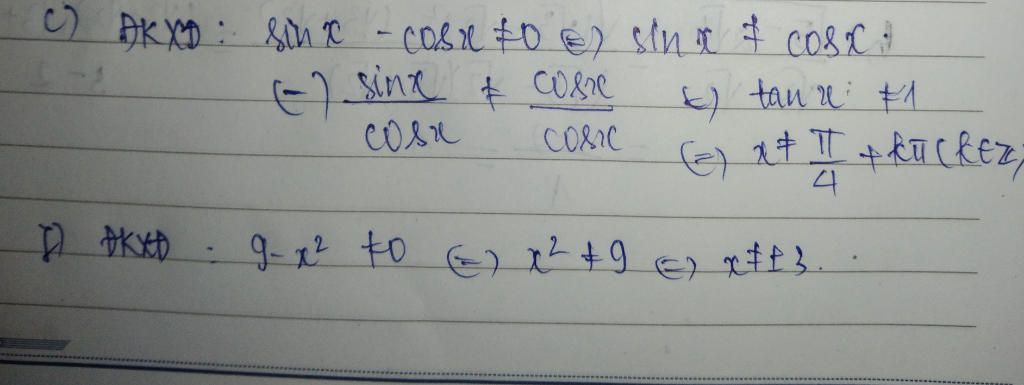 c) ĐKXĐ : sin x - cosx ≠ 0 ⇔ sin x ≠ cosx.
⇔ sinx/cosx ≠ cosx/cosx ⇔ tan x ≠ 1
⇔ x ≠ π/4 + kπ (k∈Z)
ĐKXĐ : 9-x² ≠ 0 ⇔ x² ≠ 9 ⇔ x ≠ ±3.